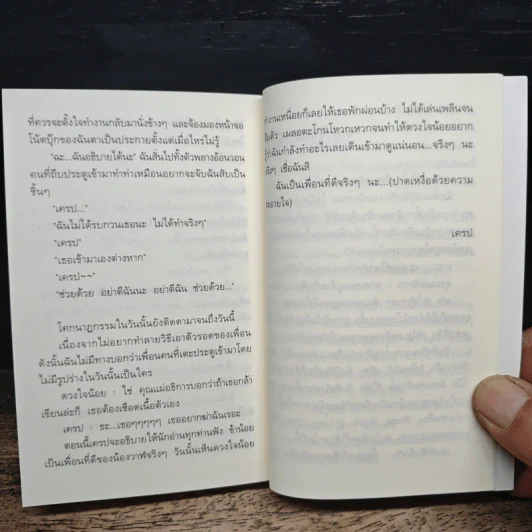 ที่ควรจะตั้งใจทำงานกลับมานั่งข้างๆ และจ้องมองหน้าจอ
โน้ตบุ๊กของฉันตาเป็นประกายตั้งแต่เมื่อไหร่ไม่รู้
"ฉะ...ฉันอธิบายได้นะ" ฉันสั่นไปทั้งตัวพลางอ้อนวอน
คนที่ถีบประตูเข้ามาทำท่าเหมือนอยากจะจับฉันสับเป็น
ชิ้นๆ
"เครป..."
"ฉันไม่ได้รบกวนเธอนะ ไม่ได้ทำจริงๆ"
"เครป"
"เธอเข้ามาเองต่างหาก"
"เครป~~"
"ช่วยด้วย อย่าตีฉันนะ อย่าตีฉัน ช่วยด้วย..."
โศกนาฏกรรมในวันนั้นยังติดตามาจนถึงวันนี้
เนื่องจากไม่อยากทำลายวิธีเอาตัวรอดของเพื่อน
ดังนั้นฉันไม่มีทางบอกว่าเพื่อนคนที่เตะประตูเข้ามาโดย
ไม่มีรูปร่างในวันนั้นเป็นใคร
ดวงใจน้อย : ใช่ คุณแม่อธิการบอกว่าถ้าเธอกล้า
เขียนล่ะก็ เธอต้องเชือดเนื้อตัวเอง
เครป : ธะ...เธอๆๆๆๆๆ เธออยากฆ่าฉันเรอะ
ตอนนี้เครปจะอธิบายให้นักอ่านทุกท่านฟัง ข้าน้อย
เป็นเพื่อนที่ดีของน้องวาฬจริงๆ วันนั้นเห็นดวงใจน้อย
ทำงานเหนื่อยก็เลยให้เธอพักผ่อนบ้าง ไม่ได้เล่นเพลินจน
ลืมตัว เผลอตะโกนโหวกเหวกจนทำให้ดวงใจน้อยอยาก
รู้ว่าฉันกำลังทำอะไรเลยเดินเข้ามาดูแน่นอน...จริงๆ นะ
จริงๆ เชื่อฉันสิ
ฉันเป็นเพื่อนที่ดีจริงๆ นะ...(ปาดเหงื่อด้วยความ
ละอายใจ)
เครป